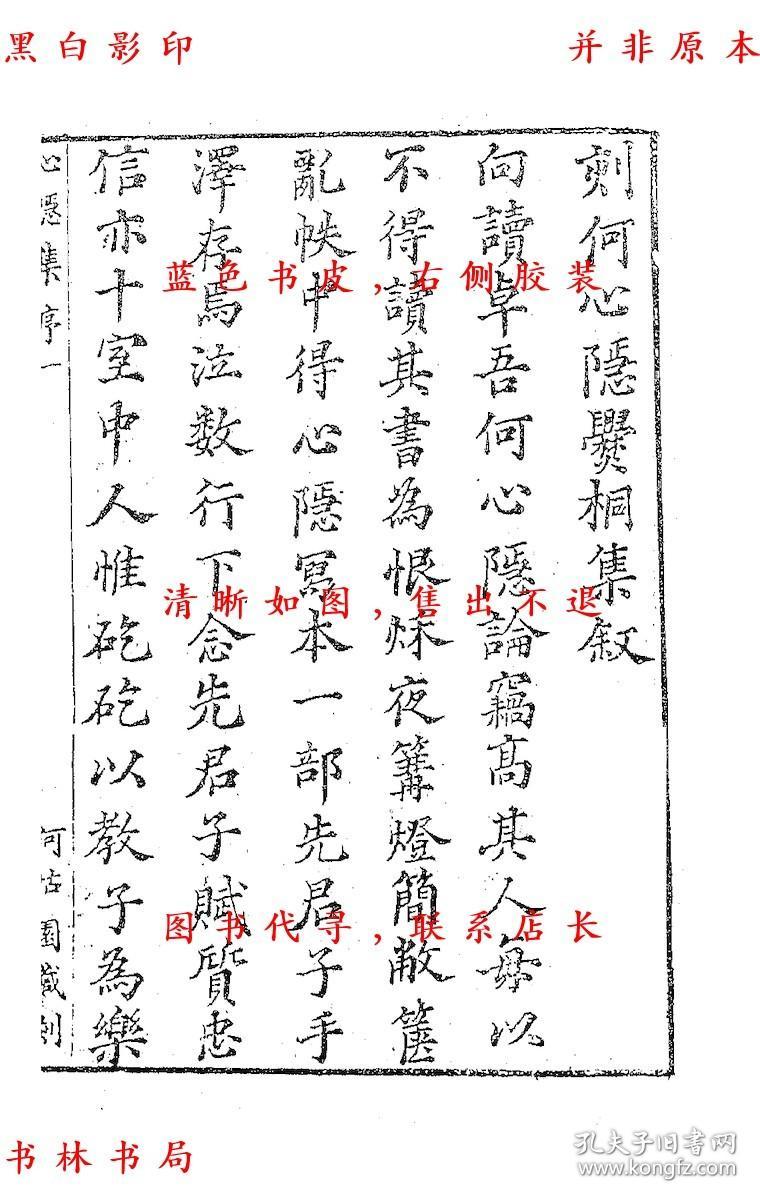 黑白影印
并非原本
刻何心隱爨桐集叙
向讀卓吾何心隱論竊高其人每以
不得讀其書為恨秌夜篝燈簡敝篋
亂帙中得心隱寫本一部先君子手
澤存焉泣數行下念先君子賦質忠
信亦十室中人惟矻矻以教子為樂
心隱集序一
何咕園藏刻
蓝色书皮,右侧胶装
清晰如图,售出不退
图书代寻,联系店长
书林书局
孔夫子旧书网
www.kongfz.com